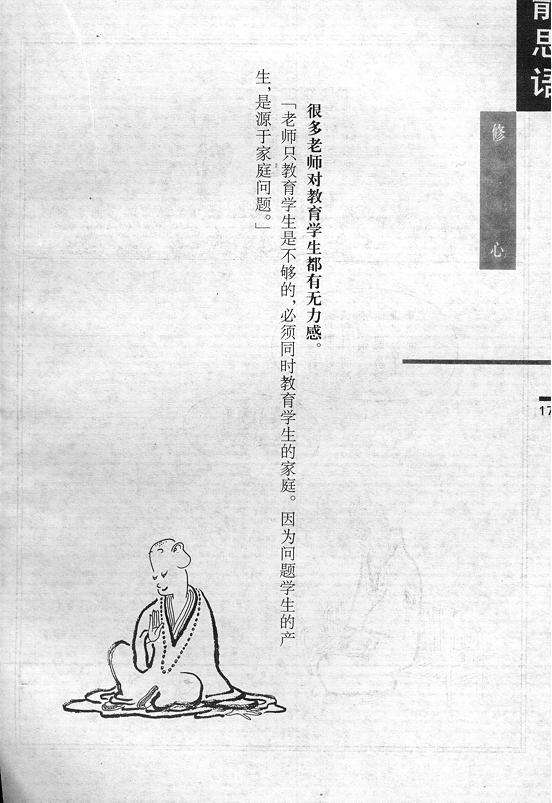 思语
修心
很多老师对教育学生都有无力感。
「老师只教育学生是不够的，必须同时教育学生的家庭。因为问题学生的产
生，是源于家庭问题。」